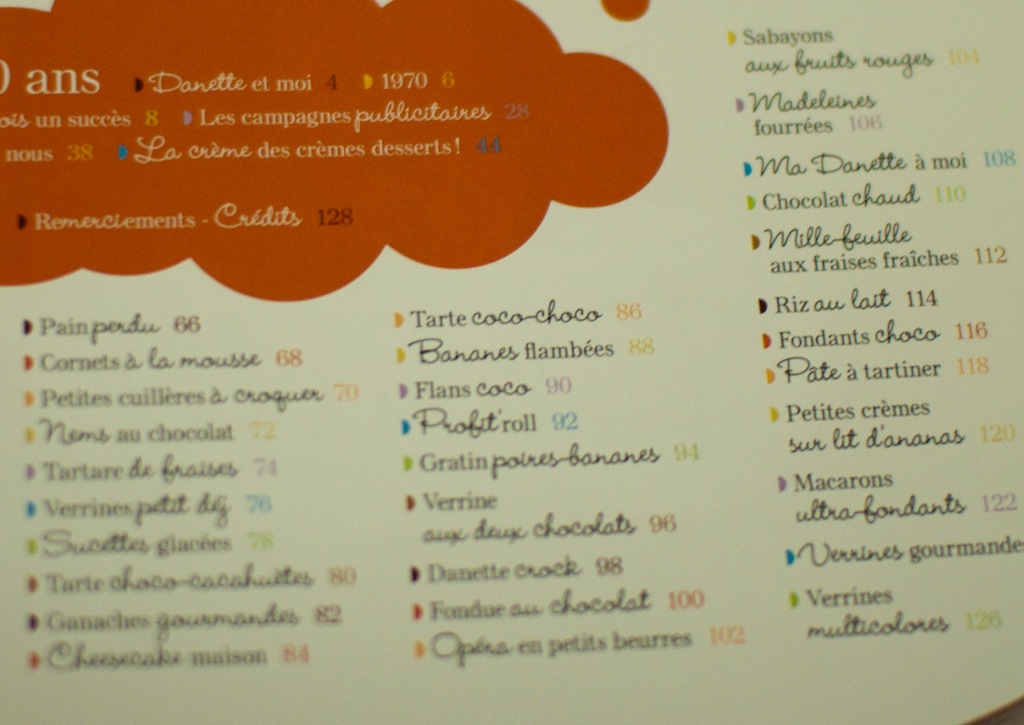 0 ans Danette et moi 4 1970 6
ois un succès 8 Les campagnes publicitaires 28
nous 38 La crème des crèmes desserts! 44
Remerciements - Crédits 128
Pain perdu 66
Cornets à la mousse 68
Petites cuillères à croquer 70
Nems au chocolat 72
Tartare de fraises 74
Verrines petit déj 76
Sucettes glacées 78
Tarte choco-cacahuètes 80
Ganaches gourmandes 82
Cheesecake maison 84
Tarte coco-choco 86
Bananes flambées 88
Flans coco 90
Profit'roll 92
Gratin poires-bananes 94
Verrine
aux deux chocolats 96
Danette crock 98
Fondue au chocolat 100
Opéra en petits beurres 102
Sabayons
aux fruits rouges 104
Madeleines
fourrées 106
Ma Danette à moi 108
Chocolat chaud 110
Mille-feuille
aux fraises fraîches 112
Riz au lait 114
Fondants choco 116
Pâte à tartiner 118
Petites crèmes
sur lit d'ananas 120
Macarons
ultra-fondants 122
Verrines gourmande
Verrines
multicolores 126